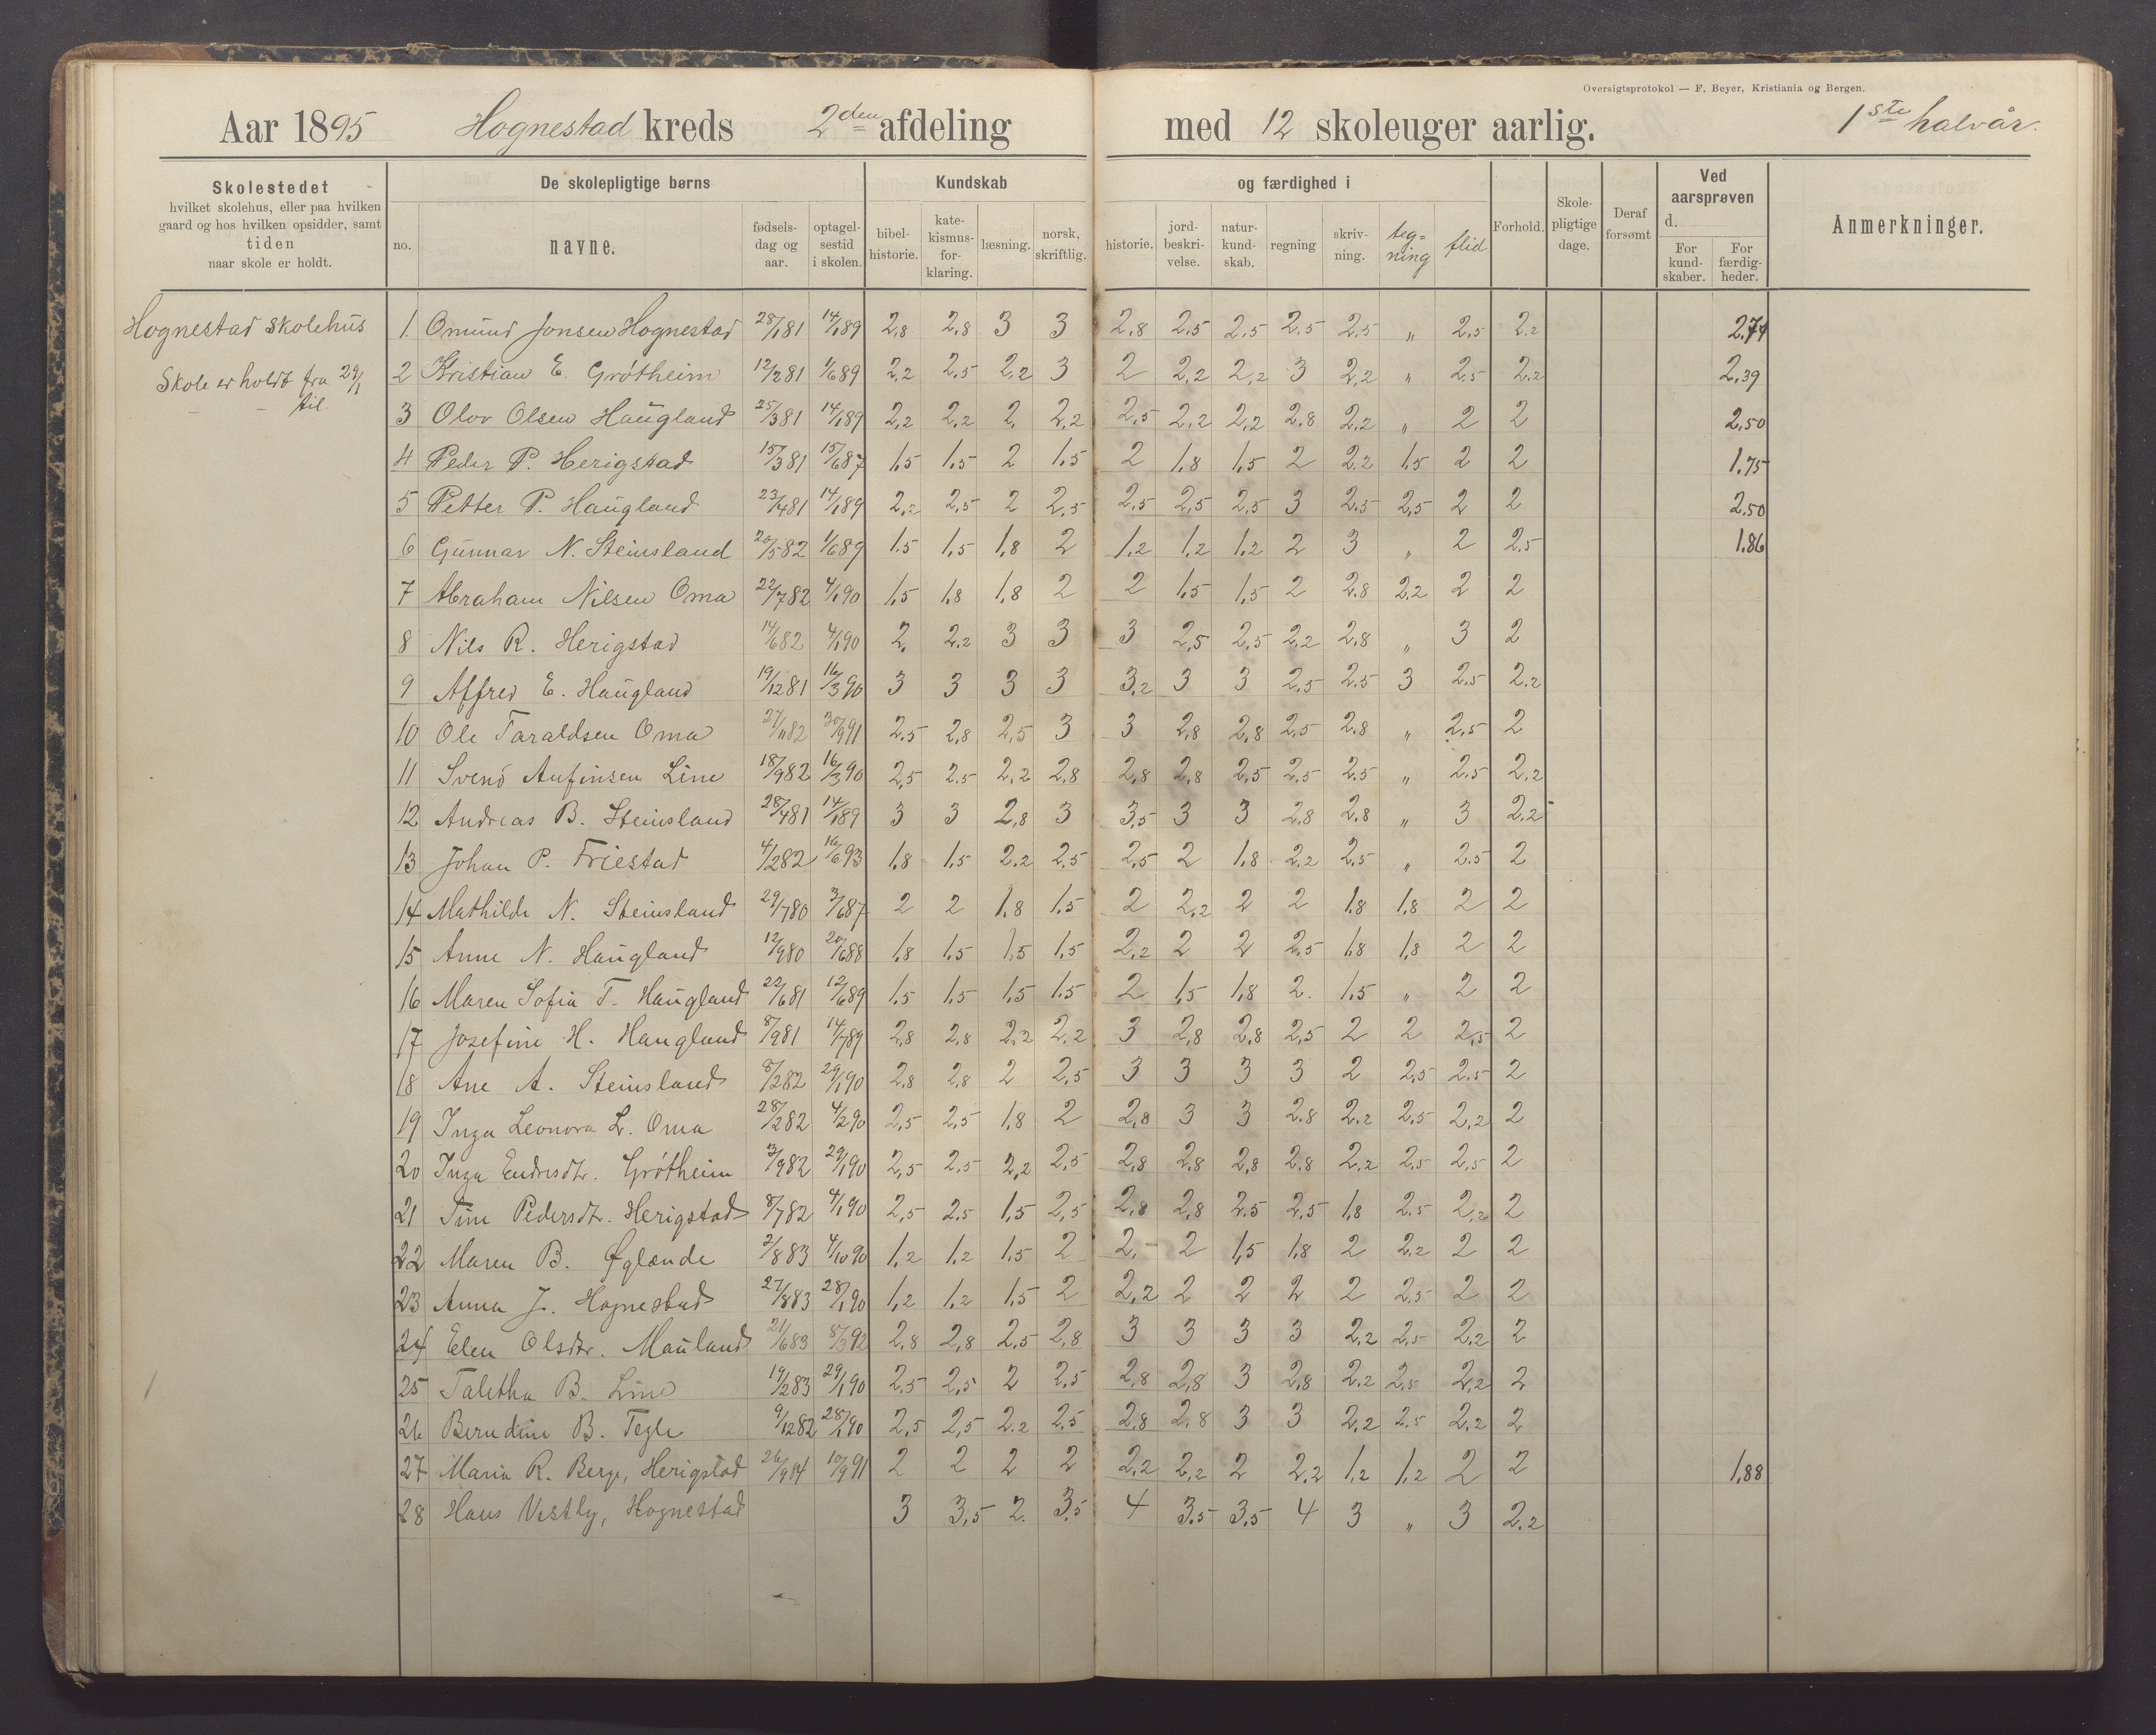 Oversigtsprotokol — F. Beyer, Kristiania og Bergen.
Aar 1895 Hognestad kreds 2den afdeling med 12 skoleuger aarlig. 1ste halvår.
Skolestedet
hvilket skolehus, eller paa hvilken
gaard og hos hvilken opsidder, samt
tiden
naar skole er holdt.
De skolepligtige børns
no.
navne.
fødsels-
dag og
aar.
optagel-
sestid
i skolen.
Kundskab og færdighed i
bibel-
historie.
kate-
kismus-
for-
klaring.
læsning.
norsk,
skriftlig.
historie.
jord-
beskri-
velse.
natur-
kund-
skab.
regning
skriv-
ning.
teg=
ning
flid
Forhold.
Skole-
pligtige
dage.
Deraf
forsømt
Ved
aarsprøven
d.
For
kund-
skaber.
For
færdig-
heder.
Anmerkninger.
Hognestad skolehus
Skole er holdt fra 29/1
— — til.
1. Omund Jonsen Hognestad 28/1 81 14/1 89 2,8 2,8 3 3 2,8 2,5 2,5 2,5 2,5 „ 2,5 2,2 2,74
2 Kristian E. Grøtheim 12/2 81 1/6 89 2,2 2,5 2,2 3 2 2,2 2,2 3 2,2 „ 2,5 2,2 2,39
3 Olov Olsen Haugland 25/3 81 14/1 89 2,2 2,2 2, 2,2 2,5 2,2 2,2 2,8 2,2 „ 2 2 2,50
4 Peder P. Herigstad 15/3 81 15/6 87 1,5 1,5 2 1,5 2 1,8 1,5 2 2,2 1,5 2 2 1,75
5 Petter P. Haugland 23/4 81 14/1 89 2,2 2,5 2 2,5 2,5 2,5 2,5 3 2,5 2,5 2 2 2,50
6 Gunnar N. Steinsland 20/5 82 1/6 89 1,5 1,5 1,8 2 1,2 1,2 1,2 2 3 „ 2 2,5 1,86
7 Abraham Nilsen Oma 22/7 82 4/1 90 1,5 1,8 1,8 2 2 1,5 1,5 2 2,8 2,2 2 2
8 Nils R. Herigstad 14/6 82 4/1 90 2, 2,2 3 3 3 2,5 2,5 2,2 2,8 „ 3 2
9 Affred E. Haugland 19/12 81 16/3 90 3 3 3 3 3,2 3 3 2,5 2,5 3 2,5 2,2
10 Ole Taraldsen Oma 27/11 82 30/9 91 2,5 2,8 2,5 3 3 2,8 2,8 2,5 2,8 „ 2,5 2
11 Svend Aufinsen Line 18/9 82 16/3 90 2,5 2,5 2,2 2,8 2,8 2,8 2,5 2,5 2,5 „ 2,5 2,2
12 Andreas B. Steinsland 28/4 81 14/1 89 3 3 2,8 3 3,5 3 3 2,8 2,8 „ 3 2,2
13 Johan P. Friestad 4/2 82 16/6 93 1,8 1,5 2,2 2,5 2,5 2 1,8 2,2 2,5 „ 2,5 2
14 Mathilde N. Steinsland 29/7 80 3/6 87 2 2 1,8 1,5 2 2,2 2 2 1,8 1,8 2 2
15 Anne N. Haugland 12/9 80 20/6 88 1,8 1,5 1,5 1,5 2,2 2 2 2,5 1,8 1,8 2 2
16 Maren Sofia T. Haugland 22/6 81 12/6 89 1,5 1,5 1,5 1,5 2 1,5 1,8 2. 1,5 „ 2 2
17 Josefine H. Haugland 8/9 81 14/7 89 2,8 2,8 2,2 2,2 3 2,8 2,8 2,5 2 2 2,5 2
18 Ane A. Steinsland 8/2 82 29/1 90 2,8 2,8 2 2,5 3 3 3 3 2 2,5 2,5 2
19 Inga Leonora L. Oma 28/2 82 4/2 90 2,5 2,5 1,8 2 2,8 3 3 2,8 2,2 2,5 2,2 2
20 Inga Endresdtr. Grøtheim 3/9 82 29/1 90 2,5 2,5 2,2 2,5 2,8 2,8 2,8 2,8 2,2 2,5 2,5 2
21 Tine Pedersdtr. Herigstad 8/7 82 4/1 90 2,5 2,5 1,5 2,5 2,8 2,8 2,5 2,5 1,8 2,5 2,2 2
22 Maren B. Øglænde 2/8 83 4/10 90 1,2 1,2 1,5 2 2,- 2 1,5 1,8 2 2,2 2 2
23 Anna J. Hognestad 27/8 83 28/1 90 1,2 1,2 1,5 2 2,2 2 2 2 2 2,5 2 2
24 Elen Olsdtr. Mauland 21/6 83 8/3 92 2,8 2,8 2,5 2,8 3 3 3 3 2,2 2,5 2,2 2
25 Talitha B. Line 19/2 83 29/1 90 2,5 2,5 2 2,5 2,8 2,8 3 2,8 2,2 2,5 2,2 2
26 Berndine B. Tegle 9/12 82 28/1 90 2,5 2,5 2,2 2,5 2,8 2,8 3 3 2,2 2,5 2,2 2
27 Maria R. Berge, Herigstad 26/9 84 10/9 91 2 2 2 2 2,2 2,2 2 2,2 1,2 1,2 2 2 1,88
28 Hans Vestly, Hognestad 3 3,5 2. 3,5 4 3,5 3,5 4 3 „ 3 2,2